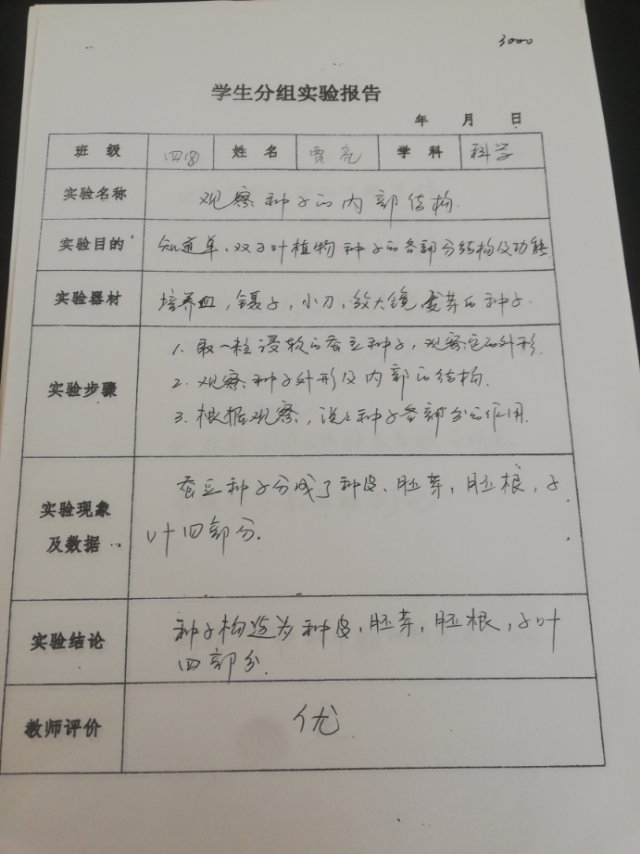 3000
学生分组实验报告
年 月 日
班级 四 姓名 贾亮 学科 科学
实验名称 观察种子的内部结构.
实验目的 知道单、双子叶植物种子的各部分结构及功能
实验器材 培养皿,镊子,小刀,放大镜 发芽的种子.
实验步骤
1. 取一粒浸软的蚕豆种子,观察它的外形.
2. 观察种子外形及内部的结构.
3. 根据观察,说说种子各部分的作用.
实验现象及数据
蚕豆种子分成了种皮、胚芽,胚根,子
叶四部分.
实验结论
种子构造为种皮,胚芽,胚根,子叶
四部分.
教师评价 优